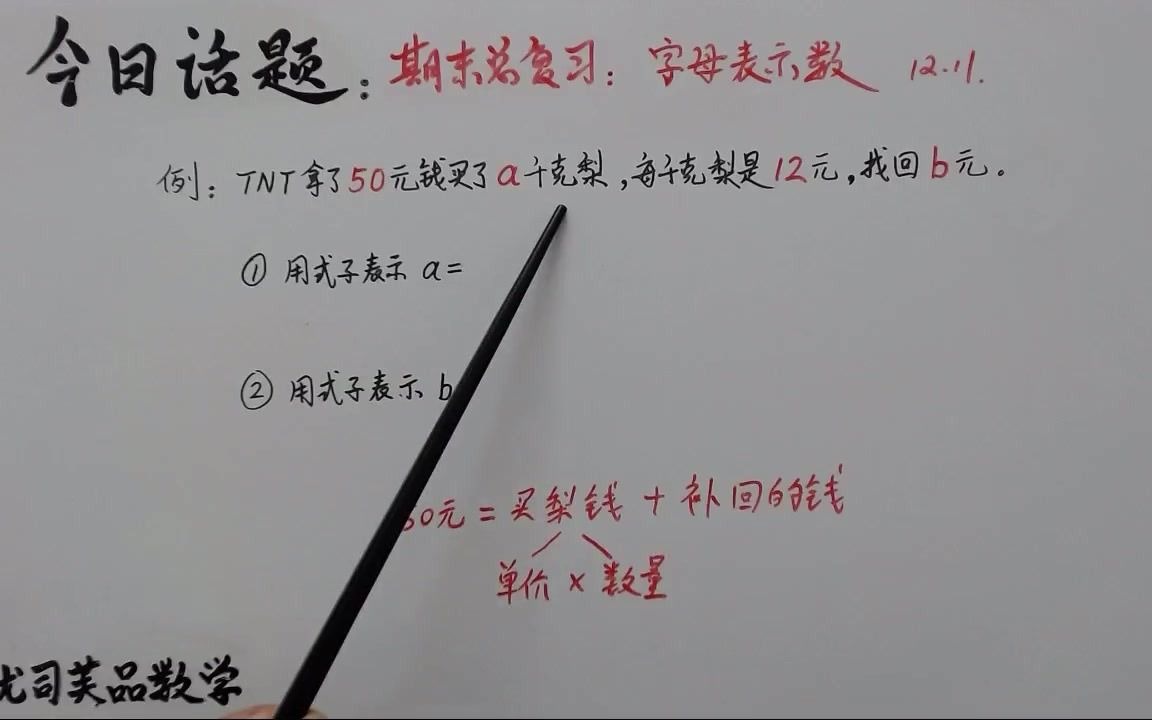 今日话题：期末总复习：字母表示数 12.11.
例：TNT拿了50元钱买了a千克梨，每千克梨是12元，找回b元。
① 用式子表示 a=
② 用式子表示 b
50元 = 买梨钱 + 补回的钱
单价 × 数量
优司芙品数学